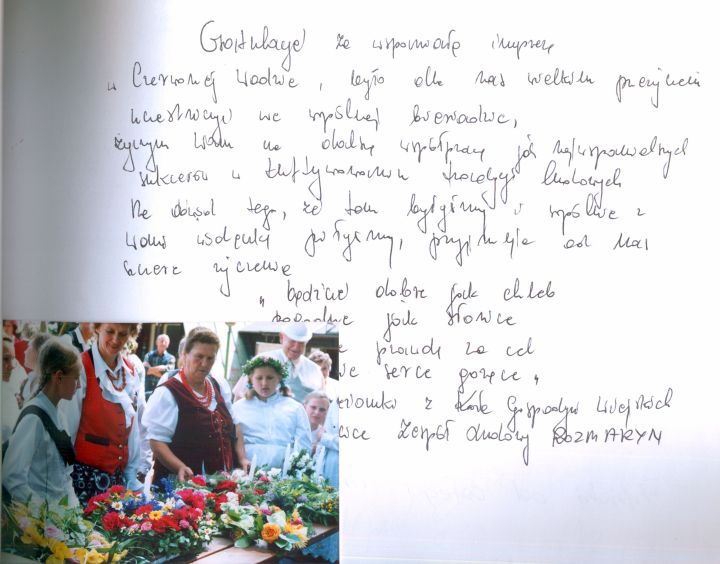 Gratulacje za wspaniałą imprezę
w Czerwonej Wodzie, było dla nas wielkim przeżyciem
uczestniczyć we wspólnej biesiadzie,
życzymy Wam na dalszą współpracę jak najwspanialszych
sukcesów w kultywowaniu tradycji ludowych
Na dowód tego, że tam byłyśmy i wspólnie z
Wami wodzenki, przyjmijcie od nas
szczere życzenia
"będzicie dobre jak chleb
jak słońce
prawdę za cel
serce gorące"
z Koła Gospodyń Wiejskich
Zespół Ludowy ROZMARYN